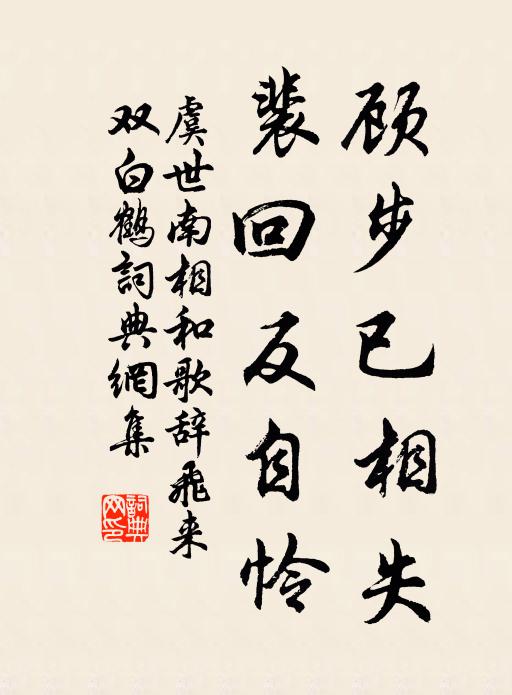 顾步已相失
裴回反自怜
虞世南相和歌辞飛来
双白鶴詞典網集
詞典
网印